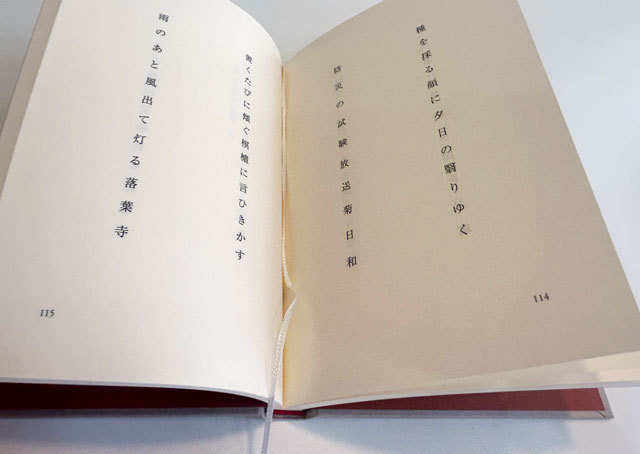 種を採る顔に夕日の翳りゆく
防災の試験放送菊日和
114
置くたびに傾ぐ榠樝に言ひきかす
雨のあと風出て灯る落葉寺
115